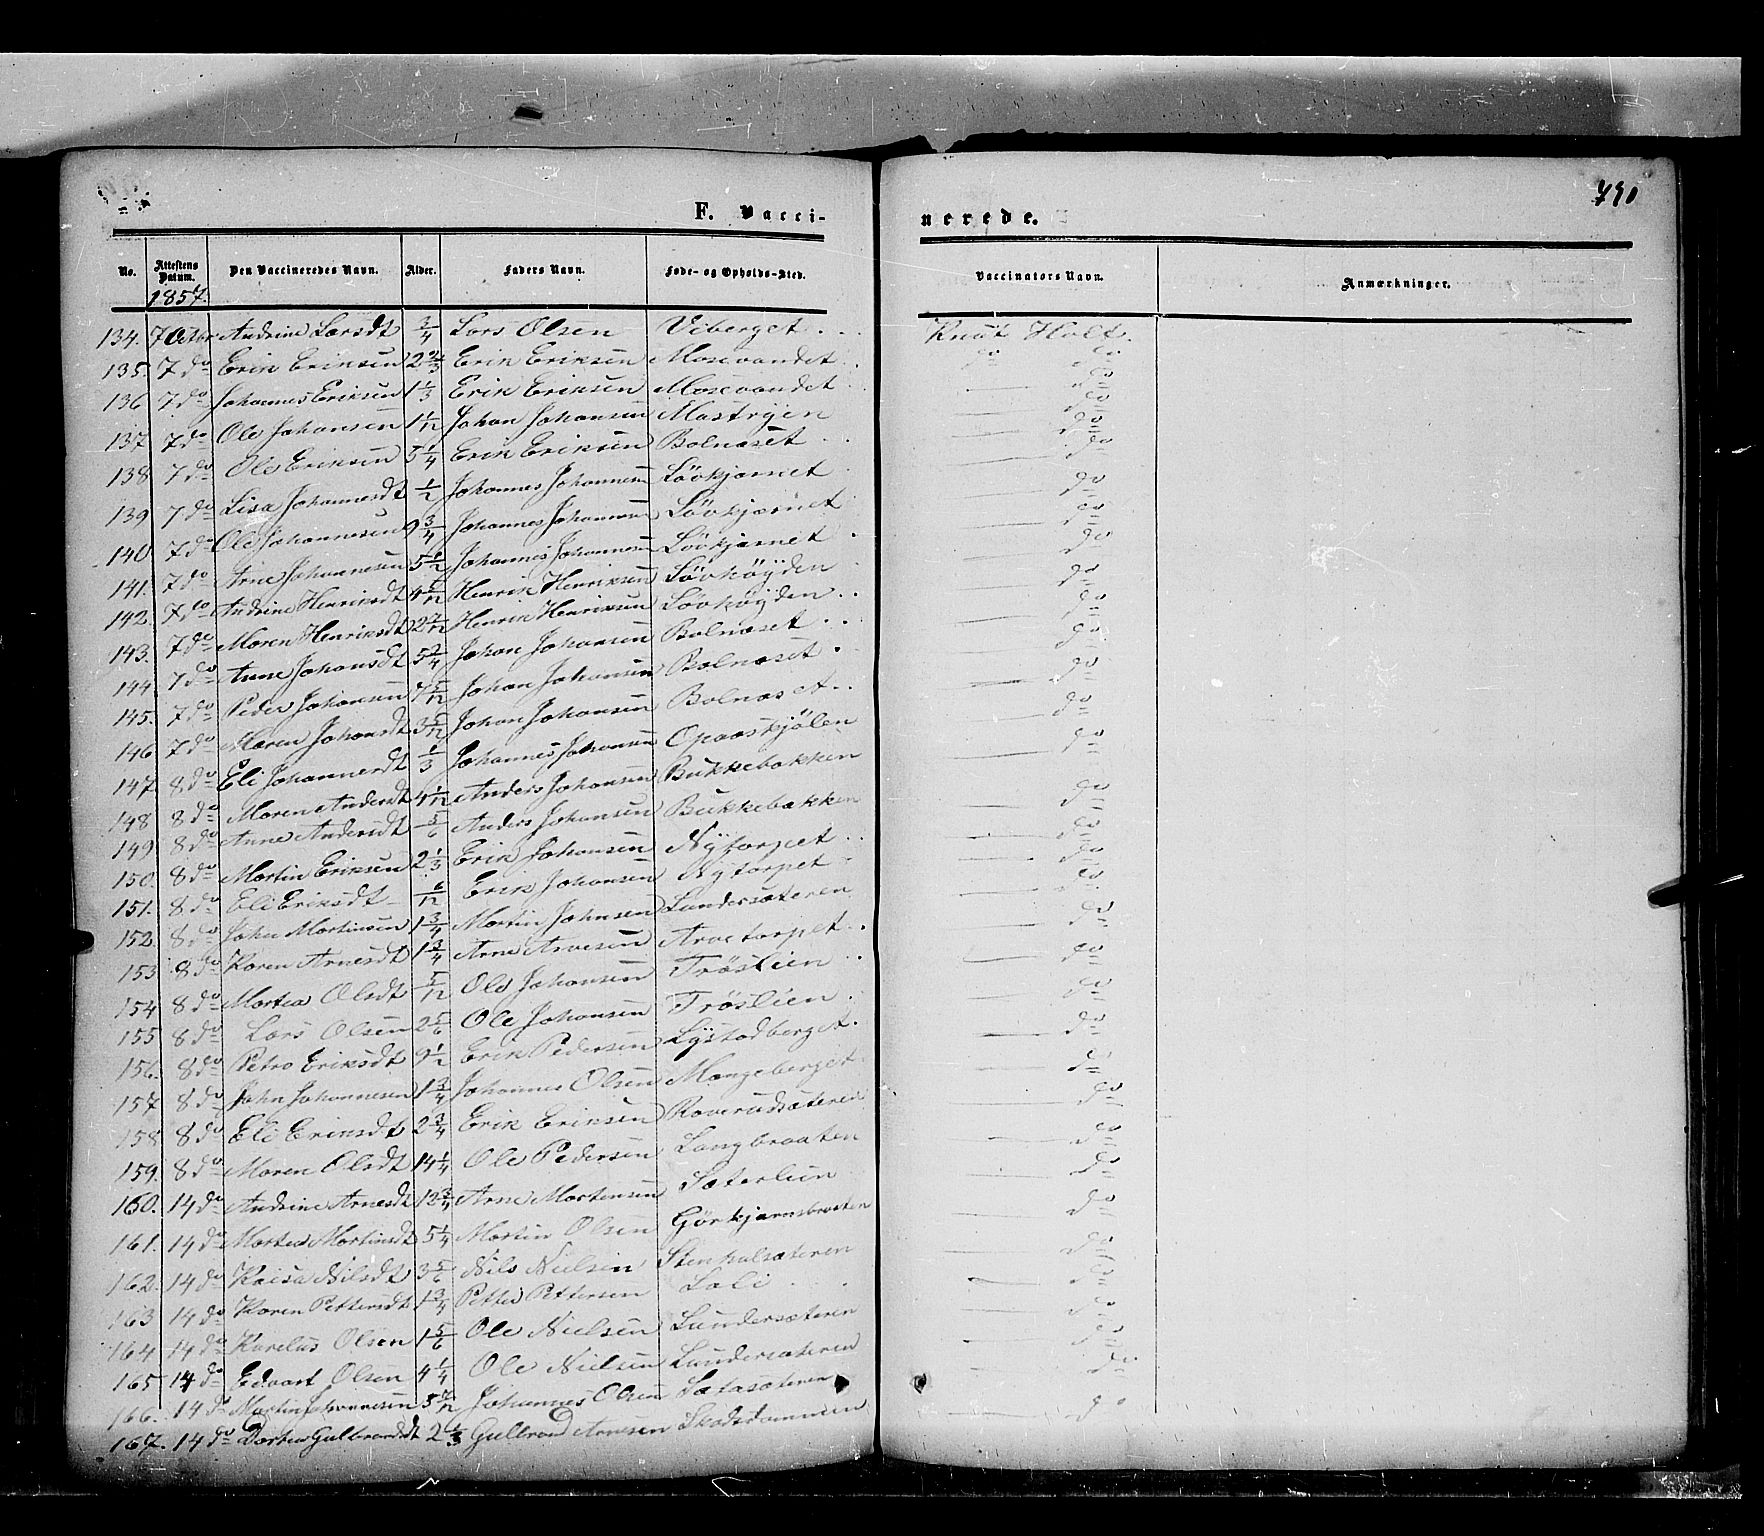 790
F. Vacci-
nerede.
No. Attestens Datum. Den Vaccineredes Navn. Alder. Faders Navn. Føde- og Opholds-Sted. Vaccinators Navn. Anmærkninger.
1857.
134. 7 Octbr Andrine Larsdt 3/4 Lars Olsen Viberget Knut Holt.
135. 7 do Erik Eriksen 2 2/3 Erik Eriksen Mosevandet do do
136 7 do Johannes Eriksen 1 1/3 Erik Eriksen Mosevandet do
137 7 do Ole Johansen 1 1/12 Johan Johansen Mastryen do
138 7 do Ole Eriksen 5 1/4 Erik Eriksen Bolnæset do
139 7 do Lisa Johannesdt 1/2 Johannes Johannesen Lövkjernet do
140 7 do Ole Johannesen 9 3/4 Johannes Johannesen Lövkjernet do
141. 7 do Arne Johannesen 5 1/2 Johannes Johannesen Lövkjernet do
142. 7 do Andrine Henriksdt Henrik Henriksen Lövhöyden do
143. 7 do Maren Henriksdt 2 7/12 Henrik Henriksen Lövhöyden do
144 7 do Anne Johansdt Johan Johansen Bolnæset do
145. 7 do Peder Johansen 7 5/12 Johan Johansen Bolnæset do
146 7 do Maren Johansdt 3 5/12 Johan Johansen Bolnæset do
147 8 do Eli Johannesdt 1/3 Johannes Johansen Opaaskjölen do
148 8 do Maren Andersdt 4 1/12 Anders Johansen Bukkebakken do
149 8 do Anne Andersdt 5/6 Anders Johansen Bukkebakken do
150. 8 do Martin Eriksen 2 1/3 Erik Johansen Nÿtorpet do
151. 8 do Eli Eriksdt Erik Johansen Nÿtorpet do
152. 8 do John Martinsen 1 3/4 Martin Johnsen Lundersæteren do
153 8 do Karen Arnesdt 1 3/4 Arne Arnesen Arvetorpet do
154 8 do Martea Olsdt 5/12 Ole Johansen Tröslien do
155 8 do Lars Olsen 2 5/6 Ole Johansen Tröslien do
156. 8 do Petro Eriksdt 9 1/2 Erik Pedersen Lÿstadberget do
157 8 do John Johannesen 1 3/4 Johannes Olsen Mangeberget do
158 8 do Eli Eriksdt 2 3/4 Erik Eriksen Roverudsæteren do
159. 8 do Maren Olsdt 14 1/4 Ole Pedersen Langbraaten do
160. 14 do Andrine Arnesdt 12 3/4 Arne Mortensen Sæterlien do
161. 14 do Martea Martinsdt 5 1/4 Martin Olsen Görkjernsbraaten do
162. 14 do Kaisa Nilsdt 3 5/6 Nils Nielsen Stenhalsæteren do
163 14 do Karen Pettersdt 1 3/4 Petter Pettersen Lali do
164 14 do Karelus Olsen 1 5/6 Ole Nielsen Lundersæteren do
165 14 do Edvart Olsen 4 1/4 Ole Nielsen Lundersæteren do
166. 14 do Martin Johannesen 5 7/12 Johannes Olsen Sætasæteren do
167. 14 do Dortea Gulbrandsdt 2 1/3 Gulbrand Arnesen Skadsdammen do